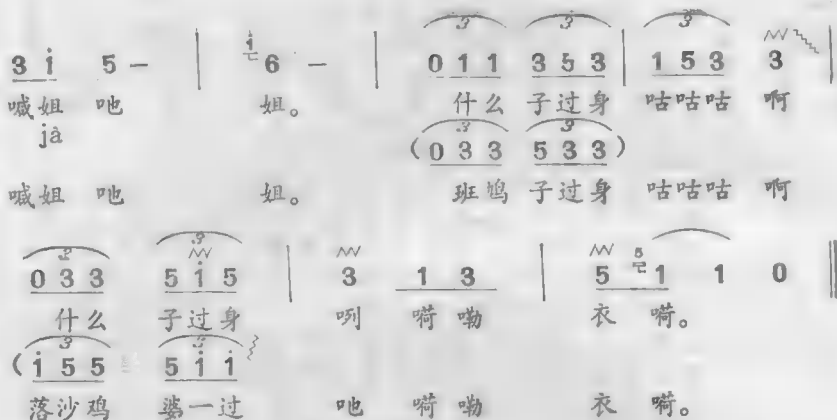 3 i 5 – | i 6 – | 0 1 1 3 5 3 | 1 5 3 3 |
喊姐 吔 姐。 什么 子过身 咕咕咕 啊
jà
(0 3 3 5 3 3)
喊姐 吔 姐。 班鸠 子过身 咕咕咕 啊
0 3 3 5 i 5 | 3 1 3 | 5 5 1 1 0 ‖
什么 子过身 咧 嗬嘞 衣 嗬。
(i 5 5 5 i i
落沙鸡 婆一过 吔 嗬嘞 衣 嗬。